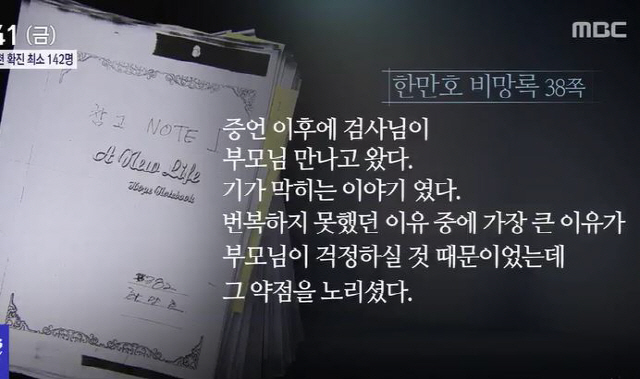 41 (금)
확진 최소 142명
MBC
한만호 비망록 38쪽
참고 NOTE 1
A New Life
Hope Notebook
증언 이후에 검사님이
부모님 만나고 왔다.
기가 막히는 이야기 였다.
번복하지 못했던 이유 중에 가장 큰 이유가
부모님이 걱정하실 것 때문이었는데
그 약점을 노리셨다.
한만호